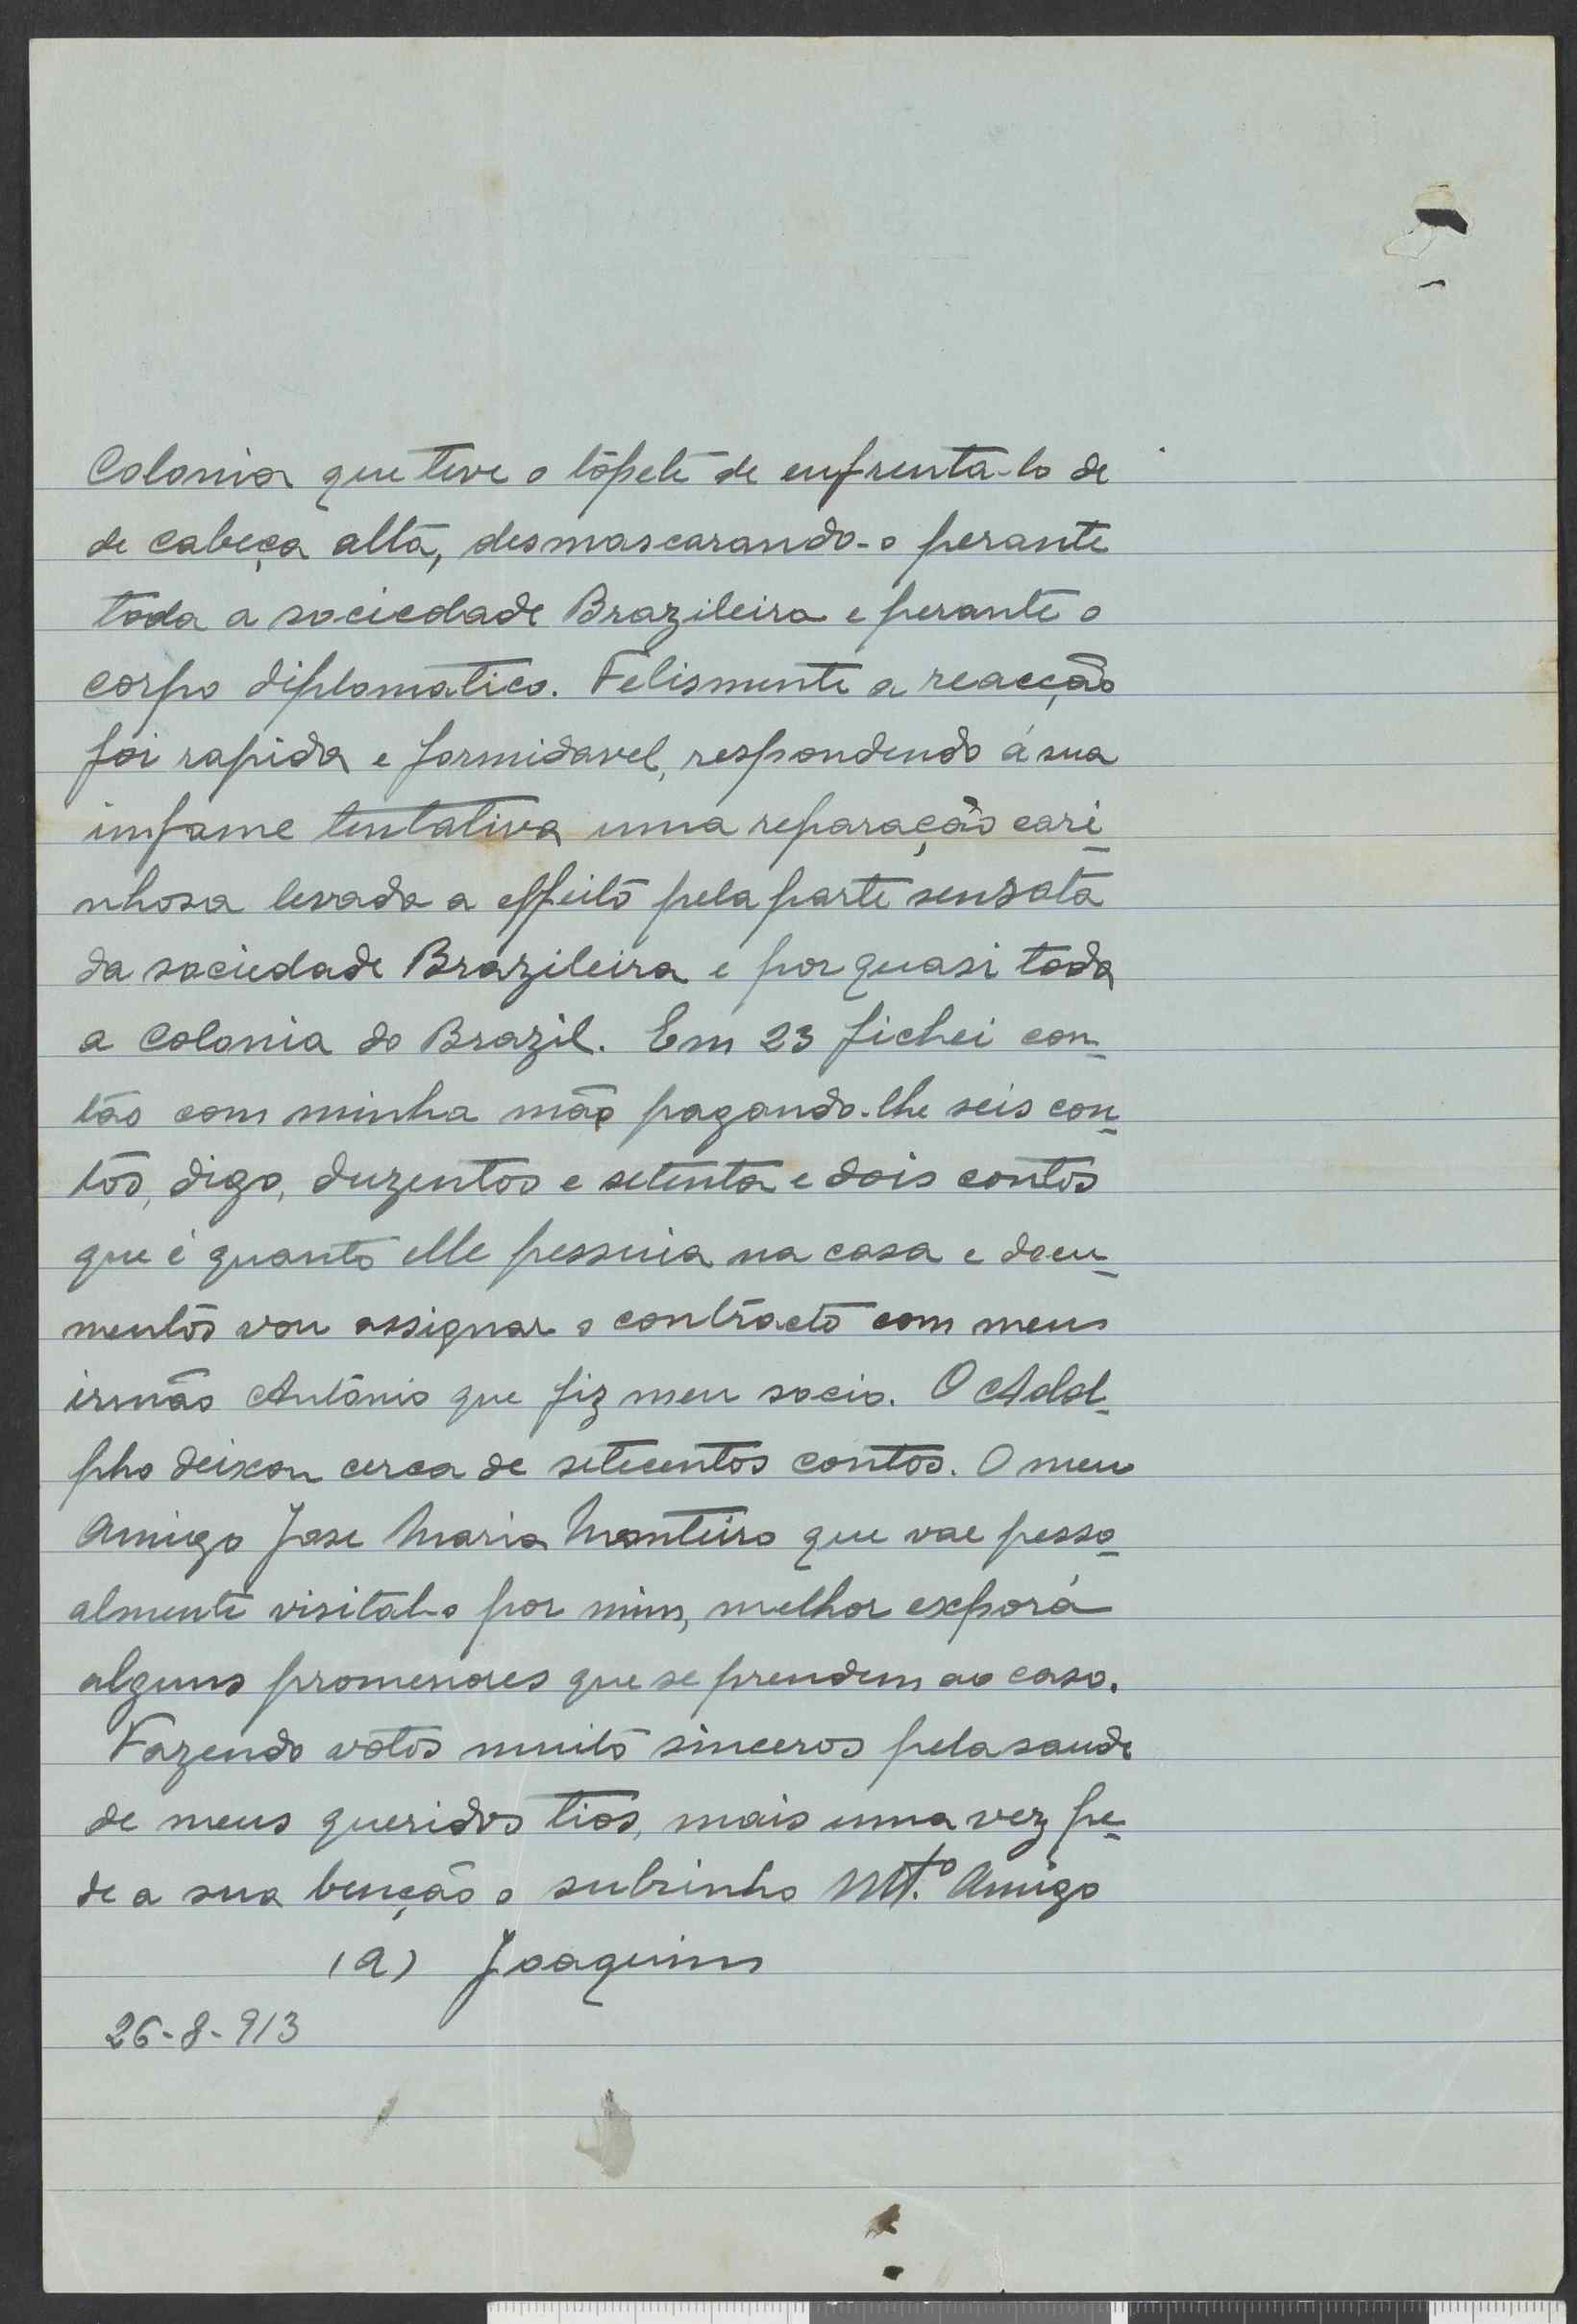 Colonia que teve o tópete de enfrenta-lo de
de cabeça alta, desmascarando-o perante
toda a sociedade Brazileira e perante o
corpo diplomatico. Felismente a reacção
foi rapida e formidavel, respondendo á sua
imfame tentativa uma reparação cari-
nhosa levada a effeito pela parte sensata
da sociedade Brazileira e por quasi toda
a Colonia do Brazil. Em 23 fichei con-
tão com minha mão pagando-lhe seis con-
tos, digo, duzentos e setenta e dois contos
que é quanto elle pessuia na casa e docu-
mentos vou assignar o contracto com meus
irmão Antonio que fiz meu socio. O Adol-
pho deixou cerca de setecentos contos. O meu
Amigo Jose Maria Monteiro que vae pesso-
almente visital-o por mim, melhor exporá
alguns promenores que se prendem ao caso.
Fazendo votos muito sinceros pela saude
de meus queridos tios, mais uma vez pe-
de a sua benção o subrinho Mt.º Amigo
(a) Joaquim
26-8-913